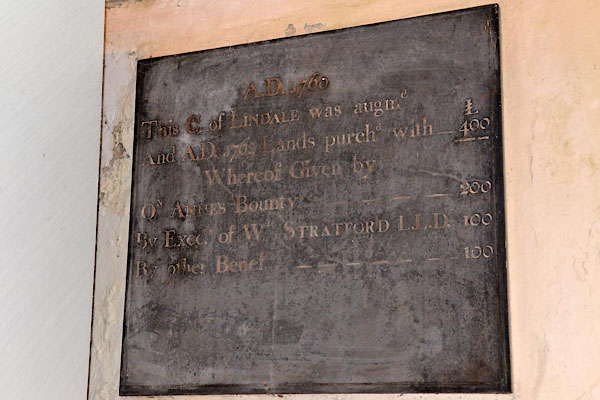 A.D. 1760
This C. of LINDALE was augm.d £
And A.D. 1762 Lands purch.d with — 400
Whereof Given by
Q.n ANNE'S Bounty — — — — 200
By Exec.rs of W.m STRATFORD L.L.D. 100
By other Benef — — — — — — 100